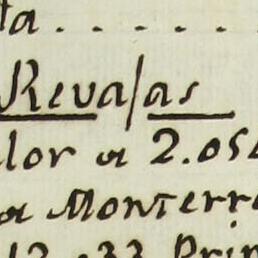 ta . . . . . .
Revajas
lor a 2.05
a Monterr
12.33 Prin